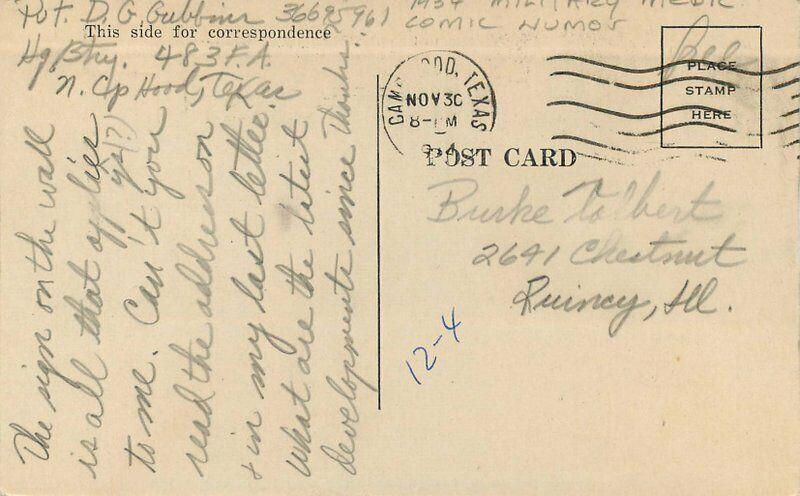 Pvt. D. G. Gubbins 36695961
This side for correspondence
Hq. Btry. 483 F.A.
N. Cp Hood, Texas
MILITARY MEDIC
COMIC HUMOR
Free
PLACE
STAMP
HERE
NOV 30
8-PM
POST CARD
Burke Tolbert
2641 Chestnut
Quincy, Ill.
12-4
The sign on the wall
is all that applies
to me. Can't you
read the address on
& in my last letter.
What are the latest
developments since Thanks.